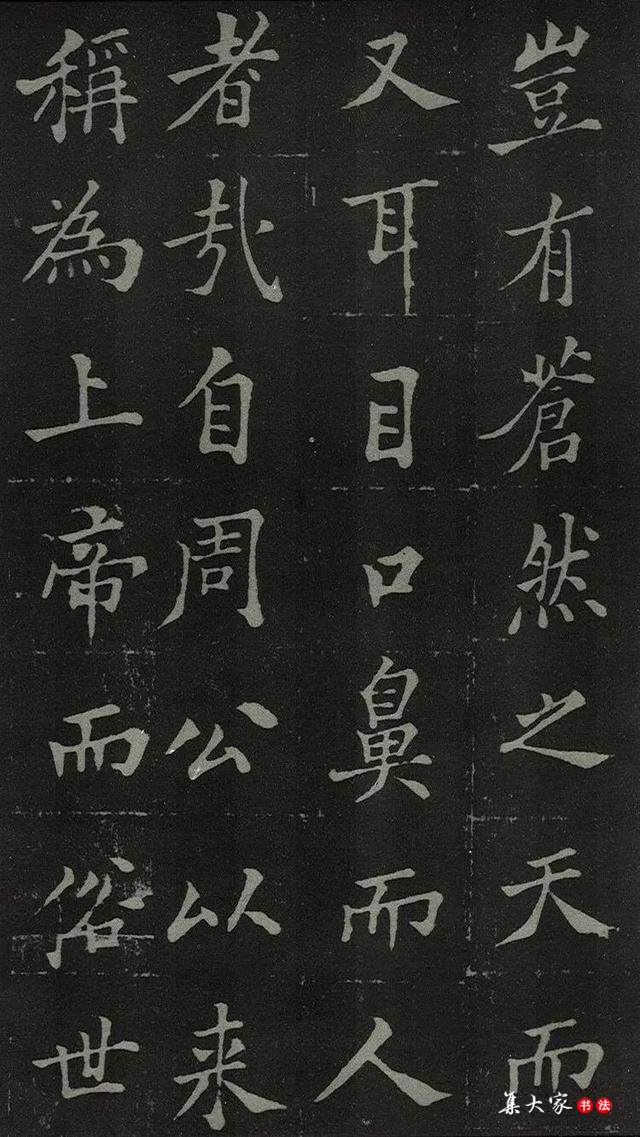 豈有蒼然之天而
又耳目口鼻而人
者哉自周公以来
稱為上帝而俗世
集大家书法